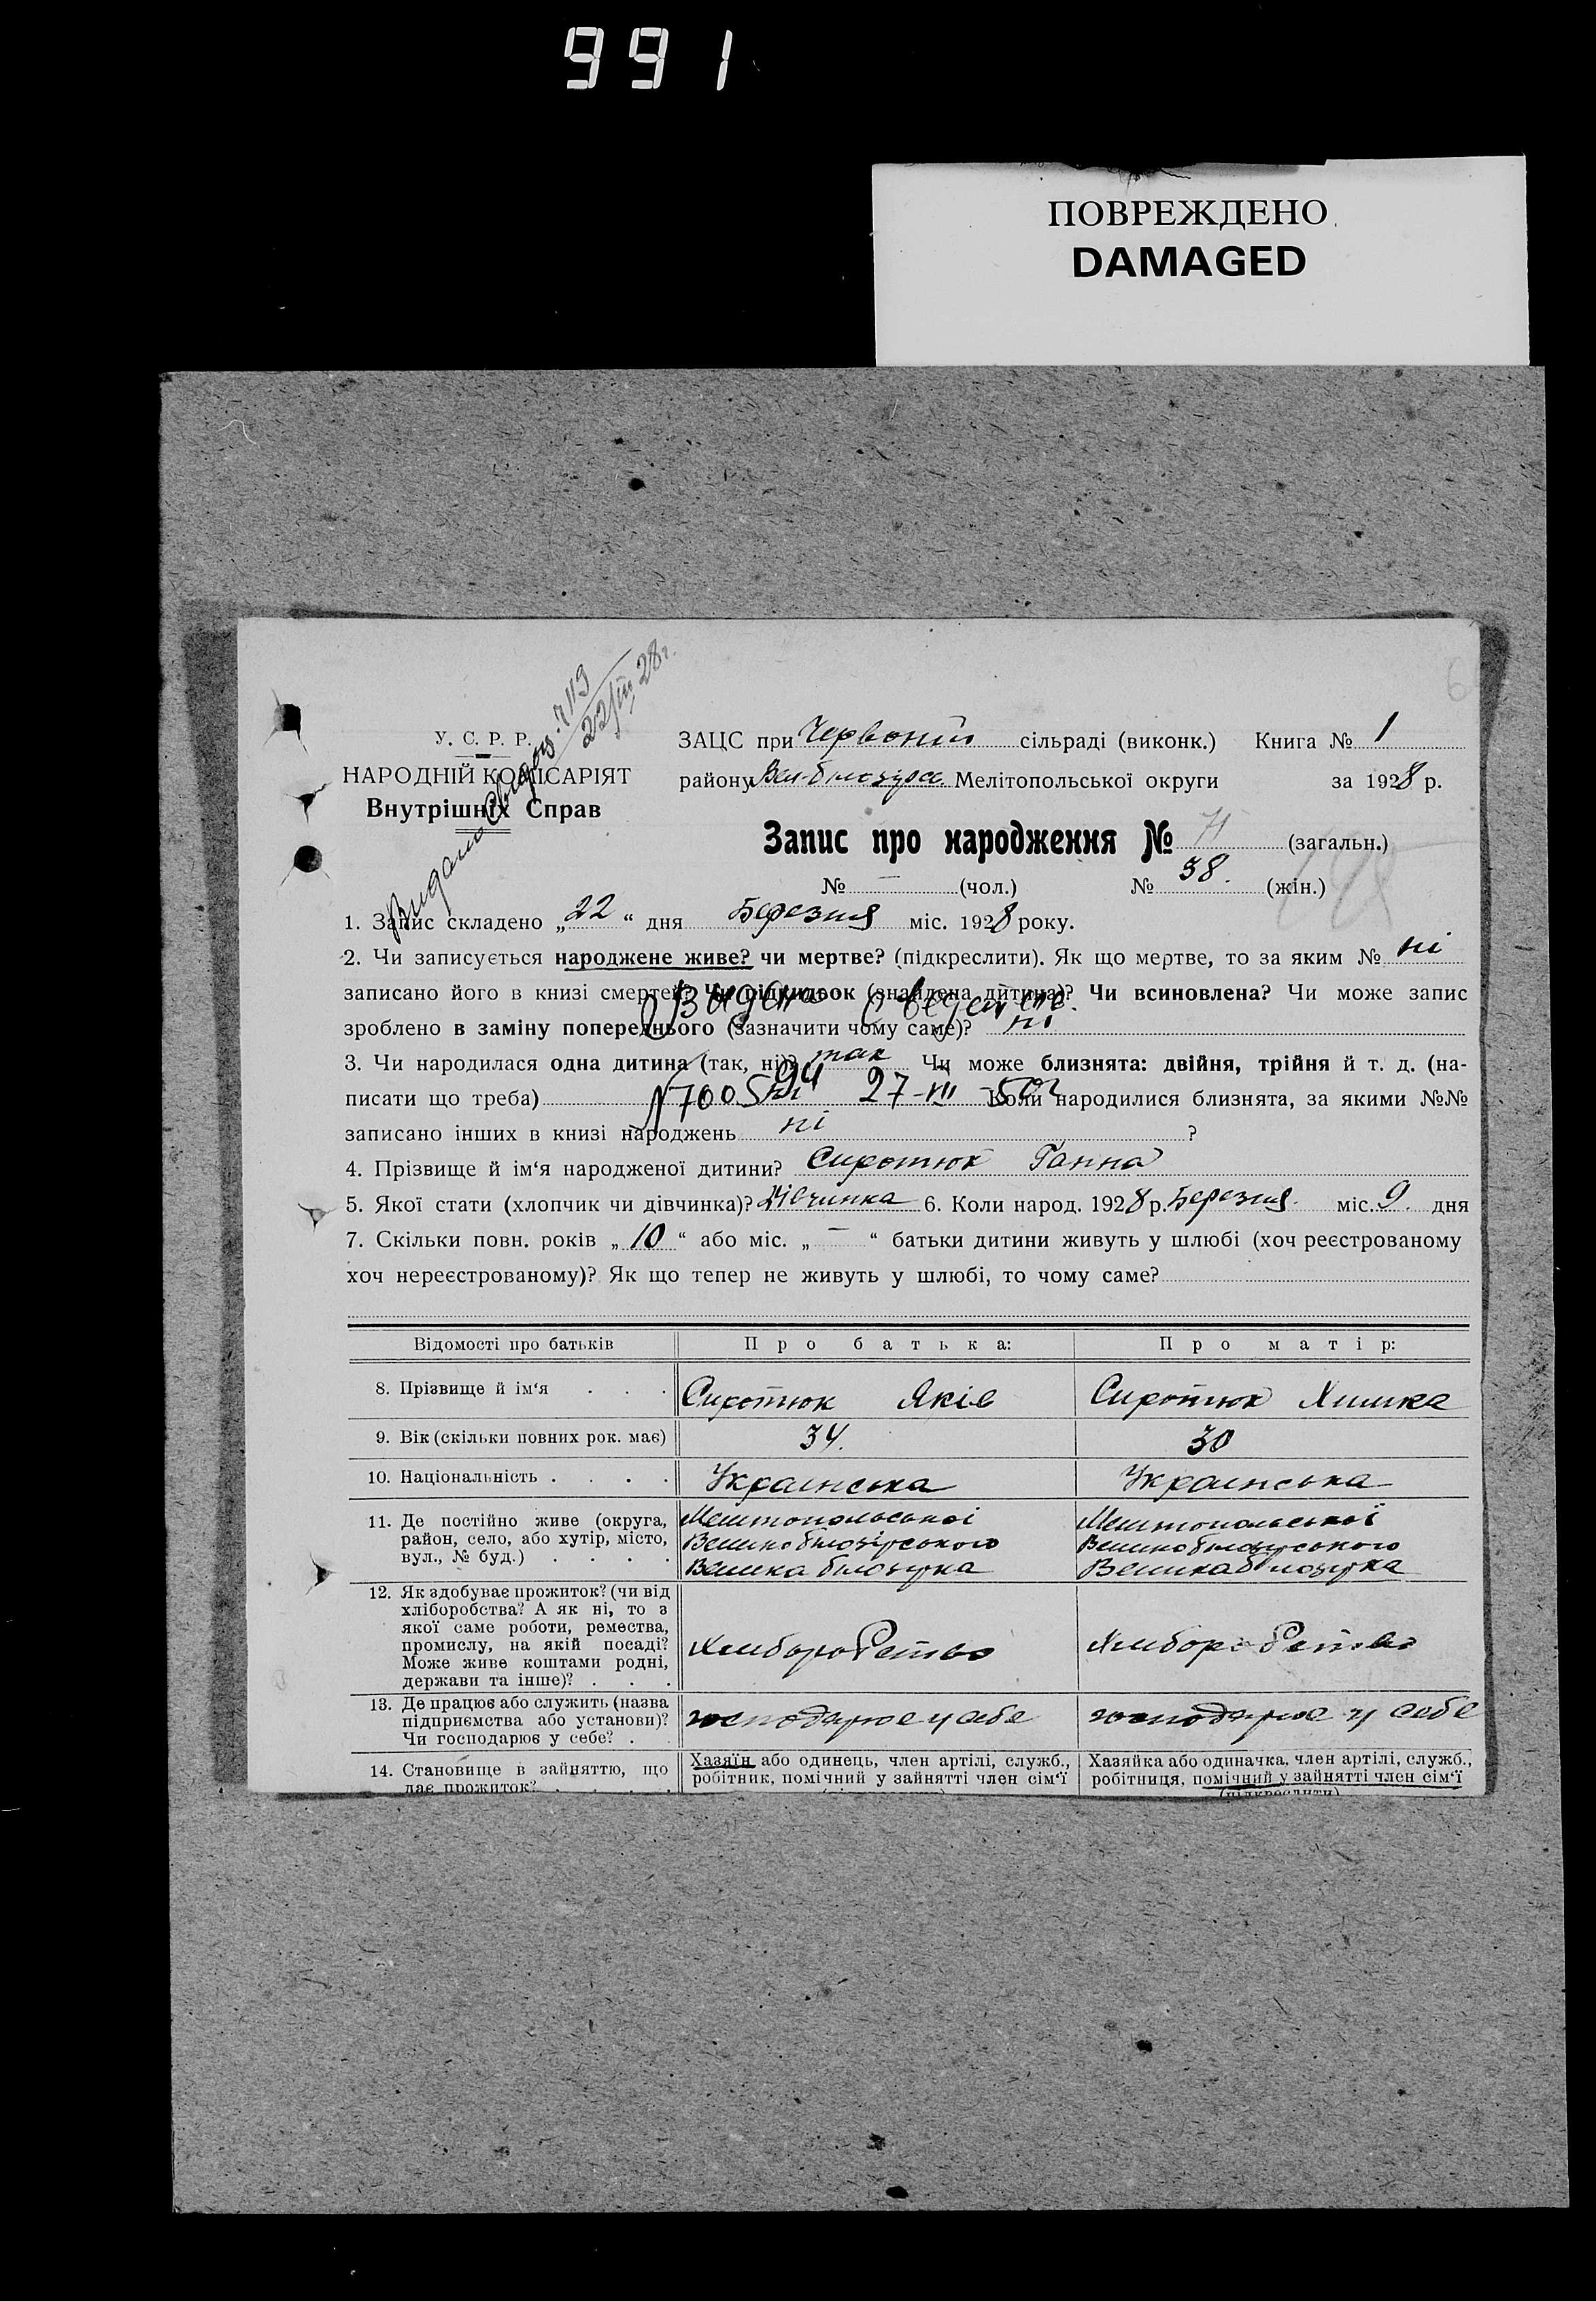 991
ПОВРЕЖДЕНО
DAMAGED
Видано Свідоц. 7113
22/III 28 г.
У. С. Р. Р.
НАРОДНІЙ КОМІСАРІЯТ
Внутрішніх Справ
ЗАЦС при Червоній сільраді (виконк.) Книга № 1
району Вел-білозірск. Мелітопольської округи за 1928 р.
Запис про народження № 71 (загальн.)
№ — (чол.) № 38. (жін.)
1. Запис складено „22“ дня Березня міс. 1928 року.
2. Чи записується народжене живе? чи мертве? (підкреслити). Як що мертве, то за яким № ні
записано його в книзі смертей? Чи підкидьок (знайдена дитина)? Чи всиновлена? Чи може запис
зроблено в заміну попереднього (зазначити чому саме)? ні
3. Чи народилася одна дитина (так, ні)? так Чи може близнята: двійня, трійня й т. д. (на-
писати що треба) ні Коли народилися близнята, за якими №№
записано інших в книзі народжень ні ?
4. Прізвище й ім‘я народженої дитини? Сиротюк Ганна
5. Якої стати (хлопчик чи дівчинка)? Дівчинка 6. Коли народ. 1928 р. Березня міс. 9. дня
7. Скільки повн. років „10“ або міс. „—“ батьки дитини живуть у шлюбі (хоч реєстрованому
хоч нереєстрованому)? Як що тепер не живуть у шлюбі, то чому саме?
Відомості про батьків Про батька: Про матір:
8. Прізвище й ім‘я . . . Сиротюк Яків Сиротюк Химка
9. Вік (скільки повних рок. має) 34. 30
10. Національність . . . . Українська Українська
11. Де постійно живе (округа,
район, село, або хутір, місто,
вул., № буд.) . . . .
Мелитопольської
Великобілозірського
Велика білозірка
Мелитопольської
Великобілозірського
Велика білозірка
12. Як здобуває прожиток? (чи від
хліборобства? А як ні, то з
якої саме роботи, ремества,
промислу, на якій посаді?
Може живе коштами родні,
держави та інше)? . . .
Хлиборобство
Хлиборобство
13. Де працює або служить (назва
підприємства або установи)?
Чи господарює у себе? .
господарює у себе
господарює у себе
14. Становище в зайняттю, що
дає прожиток? . . . .
Хазяїн або одинець, член артілі, служб.,
робітник, помічний у зайнятті член сім‘ї
Хазяйка або одиначка, член артілі, служб.,
робітниця, помічний у зайнятті член сім‘ї
(підкреслити)